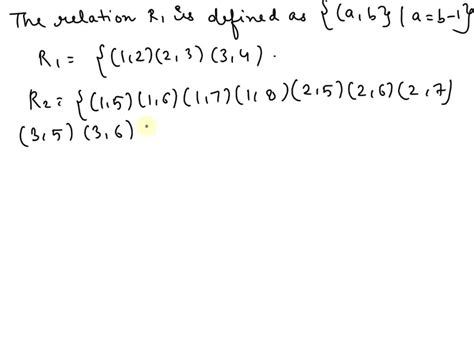 The relation R1 is defined as {(a,b} | a=b-1}
R1 = {(1,2)(2,3)(3,4).
R2 = {(1,5)(1,6)(1,7)(1,8)(2,5)(2,6)(2,7)
(3,5)(3,6)